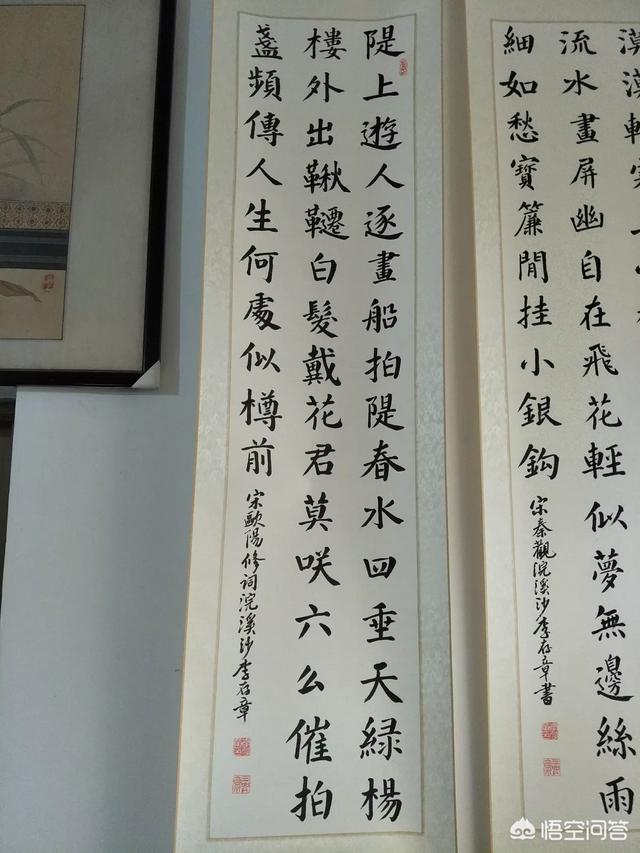 漠漠輕
流水畫屏幽自在飛花輕似夢無邊絲雨
細如愁寶簾閒挂小銀鈎
宋秦觀浣溪沙李存章書
隄上遊人逐畫船拍隄春水四垂天緑楊
樓外出鞦韆白髮戴花君莫咲六么催拍
盞頻傳人生何處似樽前
宋歐陽修詞浣溪沙李存章
悟空问答